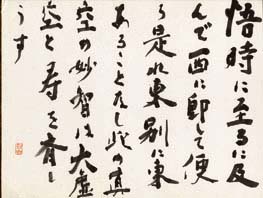 悟時に至るに及
んで西に即して便
ち是れ東別に東
あることなし此の真
空の妙智は大虚
空と寿を斉し
うす